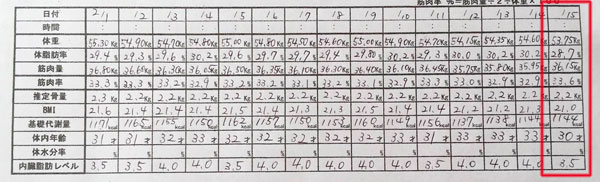 筋肉率 %=筋肉量÷2÷体重×
日付 2/1 '2 '3 '4 '5 '6 '7 '8 '9 '10 '11 '12 '13 '14 '15
時間 : : : : : : : : : : : : : : :
体重 55.30Kg 54.90Kg 54.70Kg 54.80Kg 55.00Kg 54.80Kg 54.50Kg 54.60Kg 55.00Kg 54.90Kg 54.70Kg 54.15Kg 54.35Kg 54.60Kg 53.75Kg
体脂肪率 29.4% 29.3% 29.6% 30.2% 29.6% 29.7% 29.7% 29.4% 29.80 30.2% 29.3% 28.7%
筋肉量 36.80Kg 36.60Kg 36.30Kg 36.05Kg 36.50Kg 36.35Kg 36.10Kg 36.30Kg 36.40Kg 36.10Kg 36.45Kg 35.75Kg 35.80Kg 35.95Kg 36.15Kg
筋肉率 33.3% 33.3% 33.2% 32.9% 33.2% 33.2% 33.1% 33.2% 33.1% 32.9% 33.3% 33.0% 32.9% 32.9% 33.6%
推定骨量 2.3Kg 2.2Kg 2.2Kg 2.2Kg 2.2Kg 2.2Kg 2.2Kg 2.2Kg 2.2Kg 2.2Kg 2.2Kg 2.2Kg 2.2Kg 2.2Kg 2.2Kg
BMI 21.6 21.4 21.4 21.4 21.5 21.4 21.3 21.3 21.5 21.4 21.4 21.2 21.2 21.3 21.0
基礎代謝量 1171kcal 1165kcal 1155kcal 1150kcal 1162kcal 1157kcal 1150kcal 1153kcal 1160kcal 1149kcal 1156kcal 1137kcal 1144kcal
体内年齢 31才 31才 32才 33才 32才 32才 32才 32才 32才 33才 31才 33才 33才 33才 30才
体水分率 % % % % % % % % % % % % % % %
内臓脂肪レベル 3.5 3.5 4.0 4.0 3.5 4.0 4.0 4.0 4.0 4.0 3.5 4.0 4.0 4.0 3.5